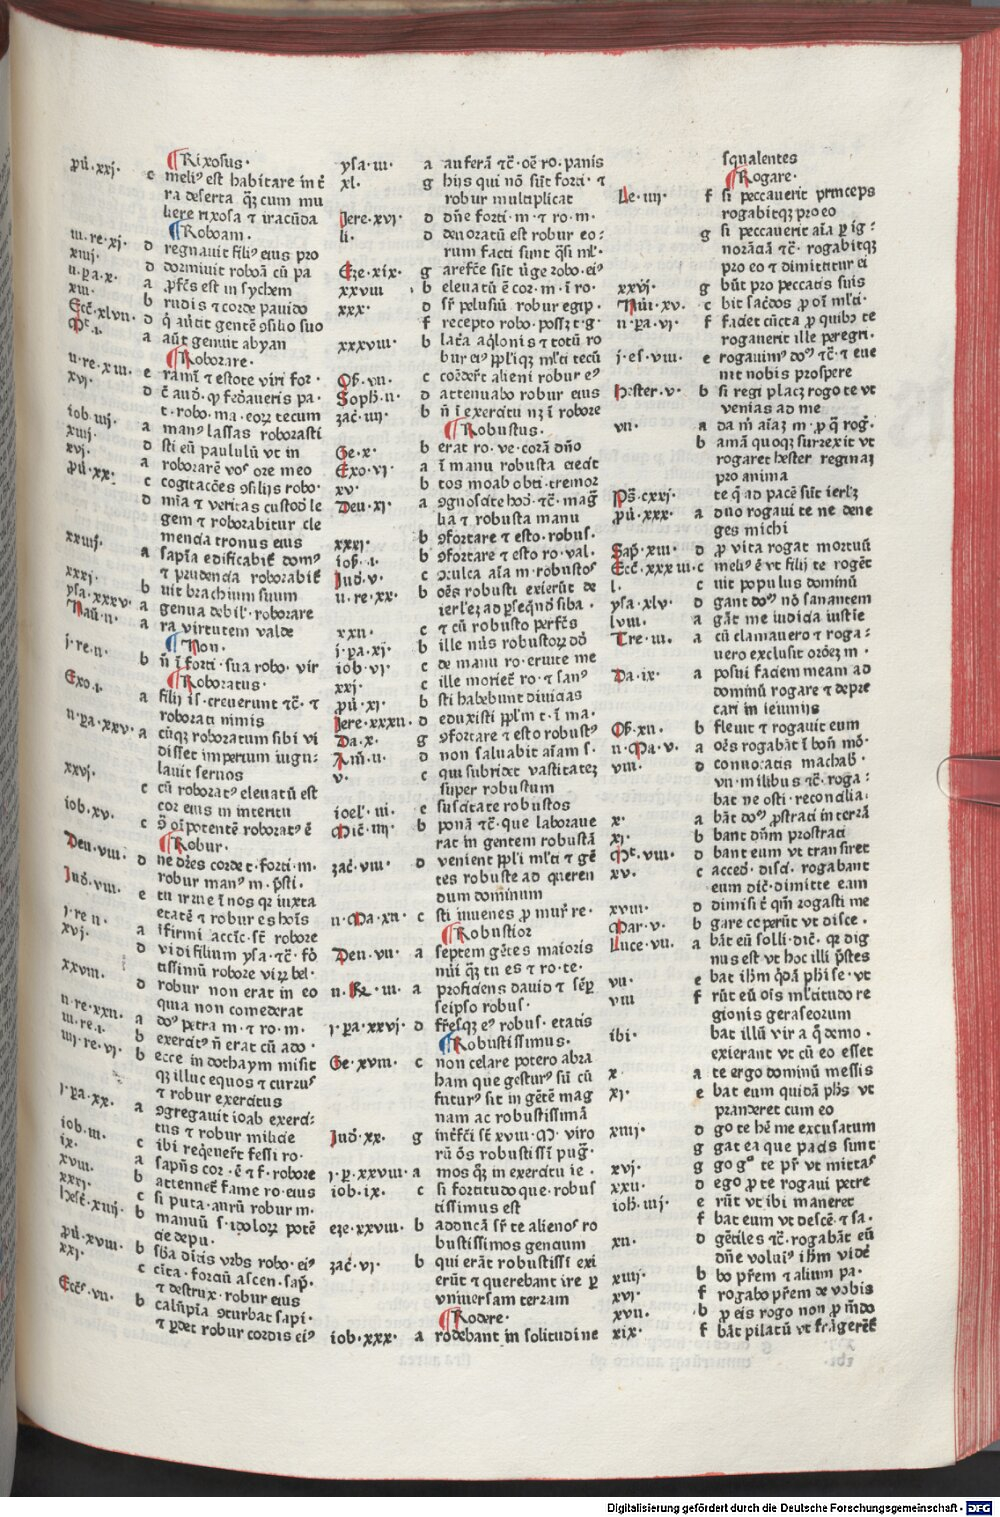 ¶Rixosus.
ꝓú.xxj. c meliꝰ est habitare in t̄
ra deserta ꝙ̄ cum mu
liere rixosa ⁊ iracūda
¶Roboam.
iii.re.xj. d regnauit filiꝰ eius pro
xiiij. d dormiuit roboā cū pa
ii.ꝑa.x. a ꝓfc̄s est in sychem
xiii. b rudis ⁊ corde pauido
Ecc̄.xlvii. d q̄ aūtit gentē ꝯsilio suo
Mt.i. a aūt genuit abyan
¶Roborare.
ii.re.xiii. e ramī ⁊ estote viri for.
xvj. d
t.robo.ma.eoꝝ tecum
iob.iiij. a manꝰ lassas roborasti
xiiij. d sti eū paululū vt in
xvj. a roborarē vos ore meo
ꝓú.xx. c cogitacōēs ꝯsilijs robo.
d mīa ⁊ veritas custod̄ le
gem ⁊ roborabitur cle
mencia tronus eius
xxiiij. a sapīa edificabit̄ domꝰ
⁊ prudencia roborabit̄
xxxj. b uit brachium suum
ysa.xxxv. a genua debil̄.roborare
Naū.ii. a ra virtutem valde
¶Non.
j.re.ii. b n̄ ī forti.sua robo.vir
¶Roboratus.
Exo.i. a filij is̄.creuerunt ⁊c̄.⁊
roborati nimis
ii.ꝑa.xxv. a cūqꝫ roboratum sibi vi
disset imperium iugu-
lauit seruos
xxvj. c cū roboratꝰ eleuatū est
cor eius in interitu
iob.xv. c ꝯ̄ oīpotentē roboratꝰ ē
¶Robur.
Deu.viii. d ne dr̄es corde t.forti.m.
robur manꝰ m.p̄sti.
Jud̄.viii. e tu irrue ī nos qr̄ iuxta
etatē ⁊ robur es hoīs
j.re.ii. a ifirmi accīc.st̄ robore
xvj. d vidi filium ysa.⁊c̄.fō
tissimū robore virꝝ bel.
xxviii. d robur non erat in eo
quia non comederat
ii.re.xxii. a doꝰ petra m.⁊ ro.m.
iii.re.i. b exercitꝰ n̄ erat cū ado.
iiij.re.vi. b ecce in dothaym misit
qꝫ illuc equos ⁊ currꝰ
⁊ robur exercitus
j.ꝑa.xx. a ꝯgregauit ioab exerci-
tus ⁊ robur milicie
iob.iii. c ibi reqeuer̄t fessi ro.
ix. a sapn̄s cor.ē ⁊ f.robore
xviii. b attennet̄ fame ro.eius
xxxj. c si puta.aurū robur m.
Hest̄.xiiij. b manuū s.ydoloꝝ potē
cie depu.
ꝓú.xviii. b sb̄a ditis vrbs robo.eiꝰ
xxj. c cīta.forciū ascen.sap̄.
⁊ destrux.robur eius
Ecc̄s.vii. b calūpīa ꝯturbat sapi.
⁊ ꝑdet robur cordis eiꝰ
ysa.iii. a auferā ⁊c̄.oē ro.panis
xl. g hijs qui nō sūt forti.⁊
robur multiplicat
Jere.xvj. d dn̄e forti.m.⁊ ro.m.
li. d deuoratū est robur eo-
rum facti sunt q̄si ml̄.
Eze.xix. g arefce sūt v̄ge robo.eiꝰ
xxviii b eleuatū ē cor.m.ī ro.
xxx. d sr̄ pelusiū robur egip.
f recepto robo.poss̄ꝫ t.g.
xxxviii. b lat̄a aq̄lonis ⁊ totū ro
bur eiꝰ ppl̄iqꝫ ml̄ti tecū
Ose.vii. c comeder̄t alieni robur eꝰ
Soph̄.ii. d attenuabo robur eius
zac̄.iiij. b n̄ ī exercitu nꝫ ī robore
¶Robustus.
Ge.x. b erat ro.ve.corā dn̄o
Exo.vj. a ī manu robusta eiect
xv. b tos moab obti.tremor
Deu.xj. a ꝯgnoscite hod̄.⁊c̄.mag̃
lia ⁊ robusta manu
xxxj. b ꝯfortare ⁊ esto.robus.
ioß.i. b ꝯfortare ⁊ esto ro.val.
Jud̄.v. c ꝯculca aīa m.robustos
ii.re.xx. b oēs robusti exierūt de
ierl̄eꝫ ad ꝑseqn̄d̄ siba.
xxii. c ⁊ cū robusto perfc̄s
j.ꝑa.xj. b ille nūs robustoꝝ dō
iob.vj. c de manu ro.eruite me
xxj. c ille moriet̄ ro.⁊ sanꝰ
ꝓú.xj. b sti habebunt diuicias
Jere.xxxii. d eduxisti ppl̄m t.ī ma.
Da.x. g ꝯfortare ⁊ esto robustꝰ
Am̄.ii. d non saluabit aīam s.
v. c qui subridꝫ vastitatēꝫ
super robustum
ioel̄.iii. c suscitate robustos
Mic̄.iiij. b ponā ⁊c̄.que laboraue
rat in gentem robustā
zac̄.viii. d venient ppl̄i ml̄ti ⁊ gē
tes robuste ad queren
dum dominum
ii.Ma.xii. c sti iuuenes ꝓ mur̄ re.
¶Robustior
Deu.vii. a septem gētes maioris
nūi q̄ꝫ tu es ⁊ ro.te.
ii.Re.iii. a proficiens dauid ⁊ sēꝑ
seipso robus.
j.ꝑa.xxvj. d fr̄esqꝫ eꝰ robus.etatis
¶Robustissimus.
Ge.xviii. c non celare potero abra
ham que gesturꝰ sū cū
futurꝰ sit in gētē mag
nam ac robustissimā
Jud̄.xx. g int̄fc̄i st̄ xviii.M.viro
rū ōs robustissī pug̃.
j.ꝑ.xxviii. a mos q̄ꝫ in exercitu ie.
iob.ix. c si fortitudo que.robus
tissimus est
eze.xxviii. b adducā sr̄ te alienos ro
bustissimos gencium
zac̄.vj. b qui erāt robustissī exi
erūt ⁊ querebant ire ꝑ
vniuersam terram
¶Rodere.
iob.xxx. a rodebant in solitudine
squalentes
¶Rogare.
Le.iiij. f si peccauerit princeps
rogabitqꝫ pro eo
g si peccauerit aīa ꝑ ig-
norāciā ⁊c̄.rogabitqꝫ
pro eo ⁊ dimittitur ei
xxvj. g būt pro peccatis suis
Nūi.xv. c bit sac̄dos ꝓ oī ml̄ti.
ii.ꝑa.vj. f faciet cūcta ꝓ quibꝰ te
rogauerit ille peregri.
j.es.viii. e rogauimꝰ doꝰ ⁊c̄.⁊ eue
nit nobis prospere
Hester.v. b si regi placꝫ rogo te vt
venias ad me
vii. a da m̄ aīaꝫ m.ꝓ q̄ rog̃.
b amā quoqꝫ surrexit vt
rogaret hester reginaꝫ
pro anima
Ps̄.cxxj. te q̄ ad pacē sūt ierl̄ꝫ
ꝓú.xxx. a duo rogaui te ne dene
ges michi
Sap̄.xiii. d ꝓ vita rogat mortuū
Ecc̄.xxxiii. c meliꝰ ē vt filij te rogēt
l. c uit populus dominū
ysa.xlv. d gant doꝰ nō saluantem
lviii. a gāt me iudicia iusticie
Tre.iii. a cū clamauero ⁊ roga-
uero exclusit oroēꝫ m.
Da.ix. a posui faciem meam ad
dominū rogare ⁊ depre
cari in ieiunijs
Os̄.xii. b fleuit ⁊ rogauit eum
ii.Ma.v. a oēs rogabāt ī bon̄ mō.
viii. d conuocatis machab̄.
vii.milibus ⁊c̄.roga-
bat ne osti.reconcilia.
x. a bāt doꝰ ꝓstrati in terrā
xj. b bant dn̄m prostrati
Mt.viii. d bant eum vt transiret
xv. c acced̄.disci.rogabant
eum dic̄.dimitte eam
xviii. d dimisi t̄ qm̄ rogasti me
Mar.v. b gare ceperūt vt disce.
Luce.vii. a bāt eū solli.dic̄.qr̄ dig
nus est vt hoc illi p̄stes
vii. e bat ih̄m q̄dā phi se.vt
viii f rūt eū oīs ml̄titudo re
gionis geraseorum
ibi. bat illū vir a q̄ demo.
exierant vt cū eo esset
x a te ergo dominū messis
xj. e bat eum quidā phs̄ vt
pranderet cum eo
xiiij. d go te hē me excusatum
g gat ea que pacis sunt
xvj. g go gꝰ te pr̄ vt mittas
xxii. d ego ꝓ te rogaui petre
ioh̄.iiij. e rūt vt ibi maneret
f bat eum vt descē.⁊ sa.
xii. d gētiles ⁊c̄.rogabāt eū
dn̄e voluiꝰ ih̄m videē
xiiij. b bo pr̄em ⁊ alium pa.
xvj. f rogabo pr̄em de vobis
xvii. b ꝓ eis rogo non ꝓ m̄do
xix. f bāt pilatū vt frāgerēt̄
Digitalisierung gefördert durch die Deutsche Forschungsgemeinschaft - DFG